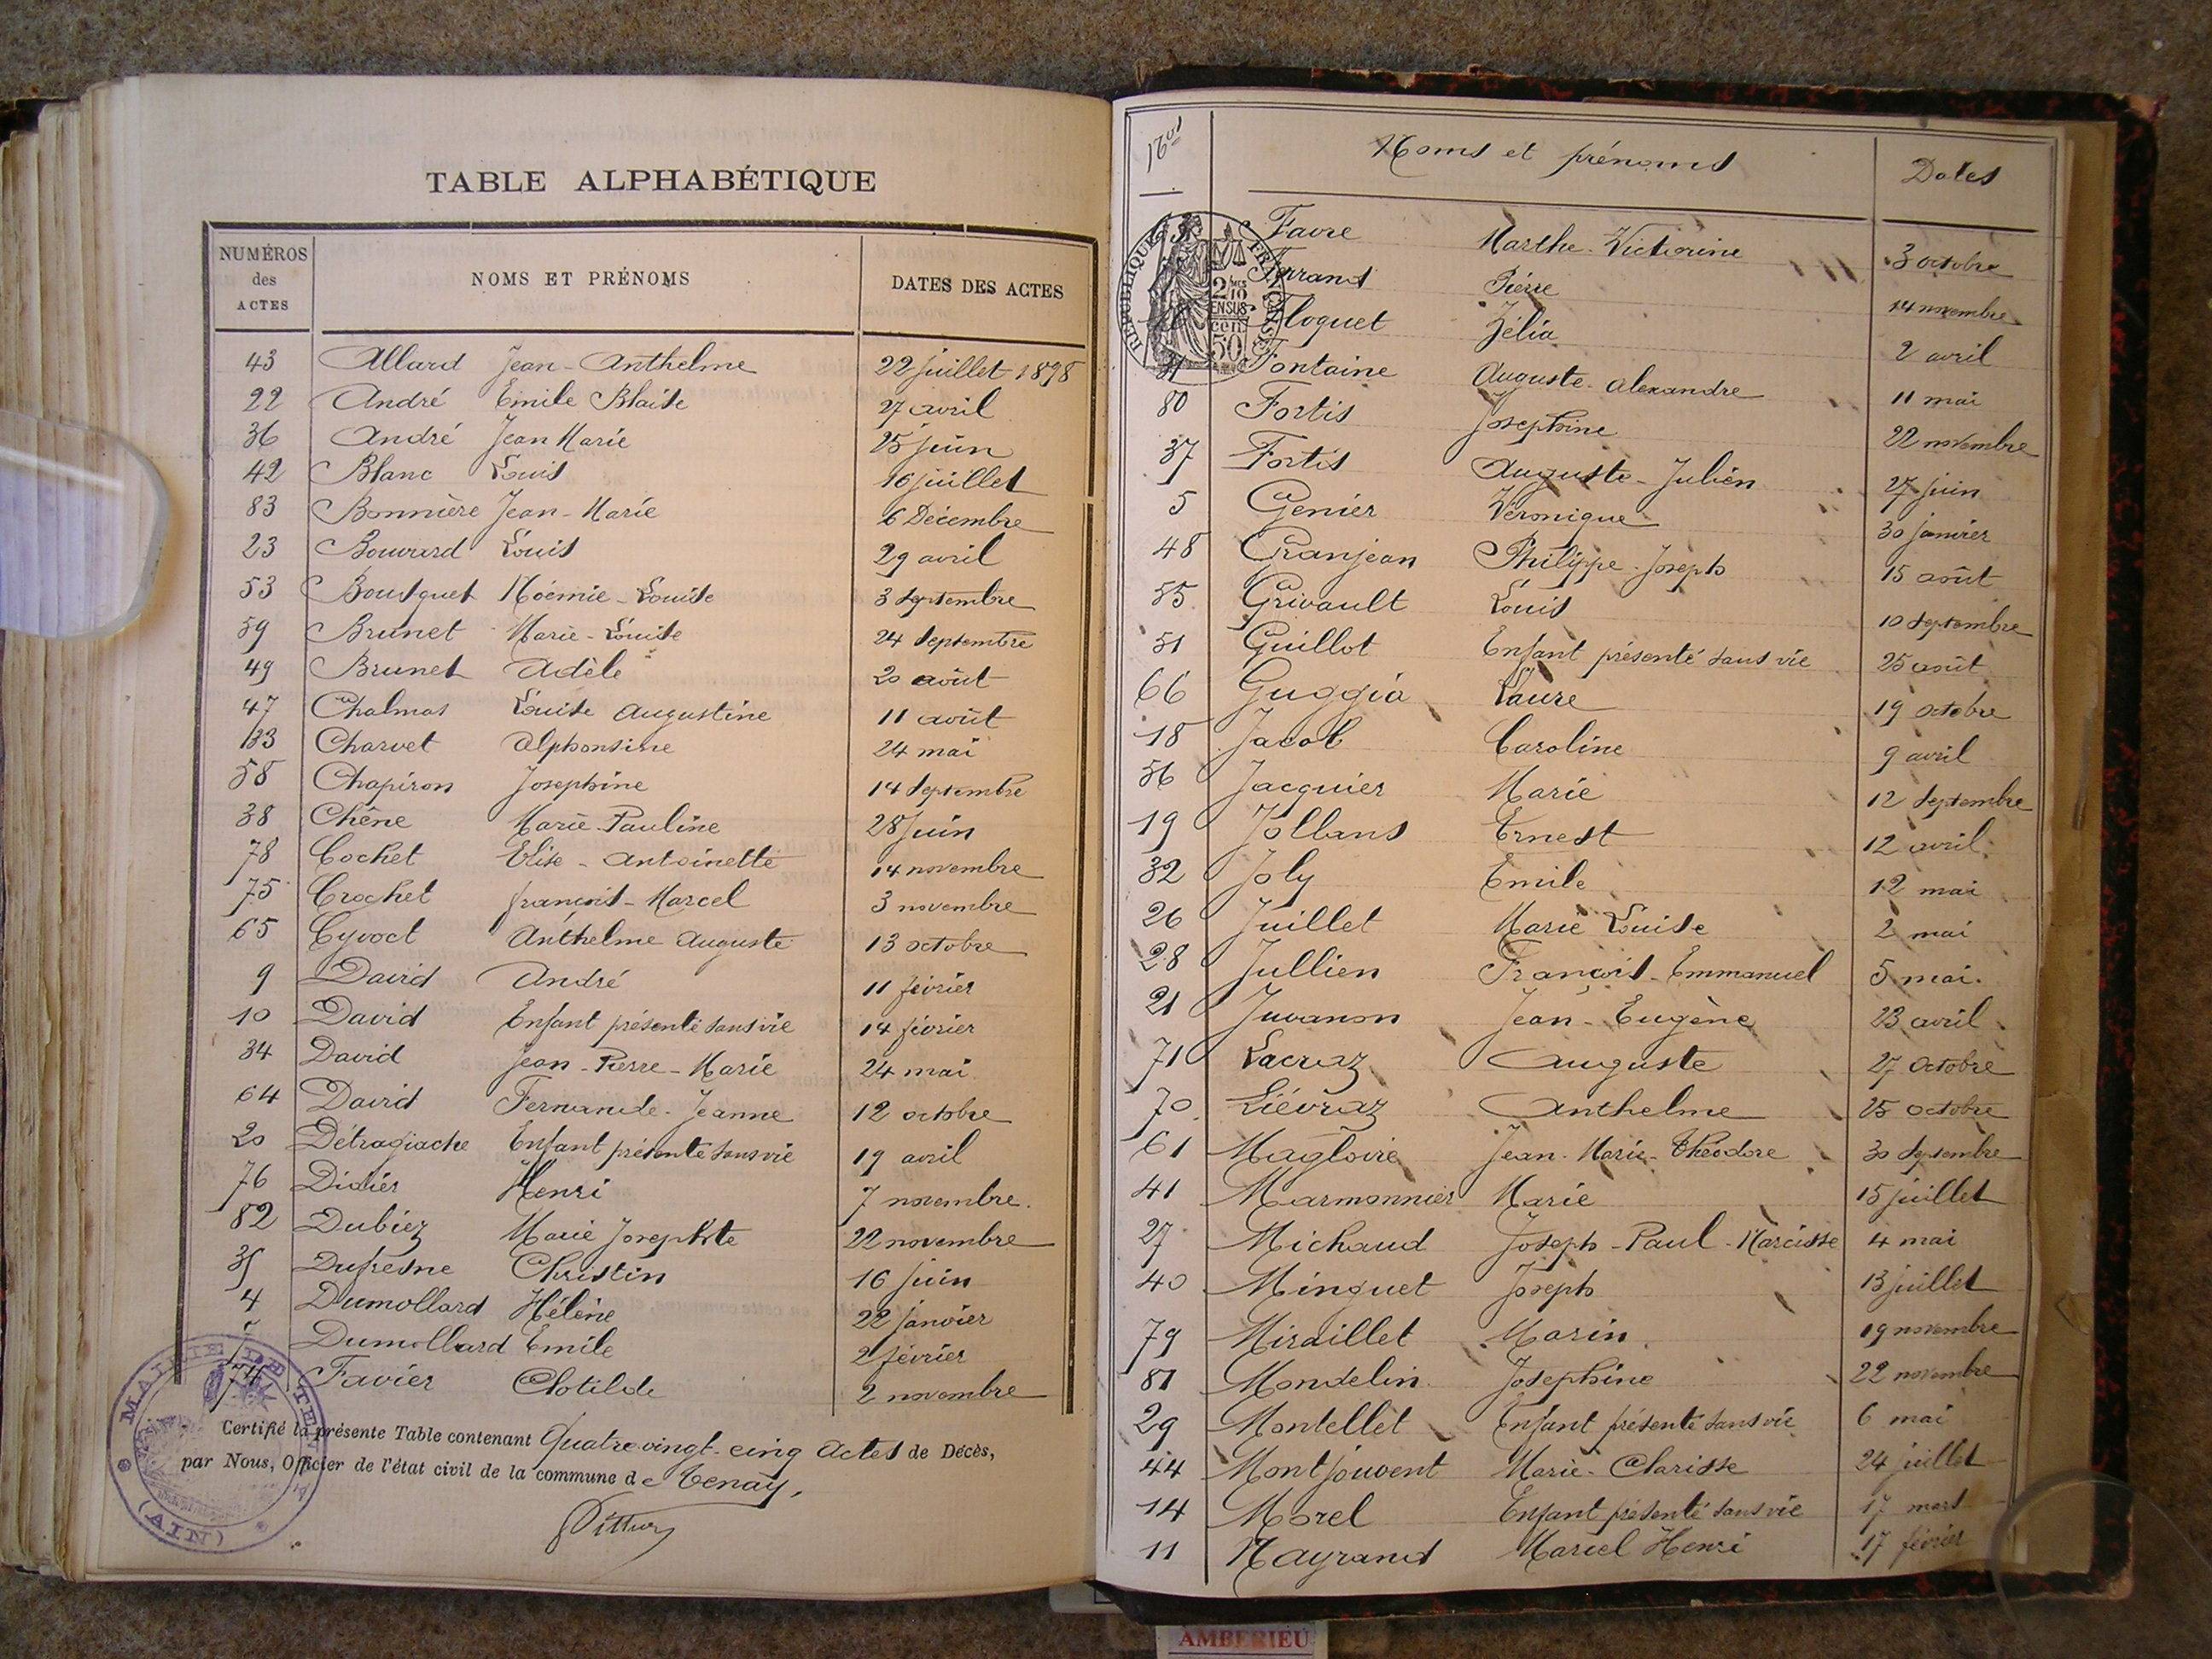 TABLE ALPHABÉTIQUE
NUMÉROS des ACTES NOMS ET PRÉNOMS DATES DES ACTES
43 Allard Jean-Anthelme 22 juillet 1898
22 André Emile Blaise 27 avril
36 André Jean Marie 25 juin
42 Blanc Louis 16 juillet
83 Bonnière Jean-Marie 6 Décembre
23 Bouvard Louis 29 avril
53 Bousquet Noémie-Louise 3 septembre
59 Brunet Marie-Louise 24 septembre
49 Brunet Adèle 20 août
47 Chalmas Louise Augustine 11 août
33 Charvet Alphonsine 24 mai
58 Chapiron Josephine 14 septembre
38 Chêne Marie-Pauline 28 juin
78 Cochet Elise-Antoinette 14 novembre
75 Crochet françois-Marcel 3 novembre
65 Cyvoct Anthelme Auguste 13 octobre
9 David André 11 février
10 David Enfant présenté sans vie 14 février
34 David Jean-Pierre-Marie 24 mai
64 David Fernande-Jeanne 12 octobre
20 Détragiache Enfant présenté sans vie 19 avril
76 Didier Henri 7 novembre.
82 Dubiez Marie Josephte 22 novembre
35 Dufresne Christin 16 juin
4 Dumollard Hélène 22 janvier
Dumollard Emile 2 février
74 Favier Clotilde 2 novembre
Certifié la présente Table contenant Quatre vingt-cinq actes de Décès,
par Nous, Officier de l'état civil de la commune de Tenay,
MAIRIE DE TENAY
(AIN)
Nos Noms et prénoms Dates
RÉPUBLIQUE FRANÇAISE
2/10 EN SUS
50 cen
63 Favre Marthe-Victorine 3 octobre
Ferrand Pierre 14 novembre
Floquet Zélia 2 avril
31 Fontaine Auguste-Alexandre 11 mai
80 Fortis Josephine 22 novembre
37 Fortis Auguste-Julien 27 juin
5 Genier Véronique 30 janvier
48 Granjean Philippe-Joseph 15 août
55 Grivault Louis 10 septembre
51 Guillot Enfant présenté sans vie 25 août
66 Guggia Laure 19 octobre
18 Jacob Caroline 9 avril
56 Jacquier Marie 12 septembre
19 Jollans Ernest 12 avril
32 Joly Emile 12 mai
26 Juillet Marie Louise 2 mai
28 Jullien François-Emmanuel 5 mai.
21 Juvanon Jean-Eugène 23 avril
71 Lacraz Auguste 27 octobre
70 Liévraz Anthelme 25 octobre
61 Magloire Jean-Marie-Théodore 30 septembre
41 Marmonnier Marie 15 juillet
27 Michaud Joseph-Paul-Narcisse 4 mai
40 Minguet Joseph 13 juillet
79 Miraillet Marin 19 novembre
81 Mondelin Josephine 22 novembre
29 Montellet Enfant présenté sans vie 6 mai
44 Montjouvent Marie-Clarisse 24 juillet
14 Morel Enfant présenté sans vie 17 mars
11 Nayrand Marcel Henri 17 février
AMBERIEU